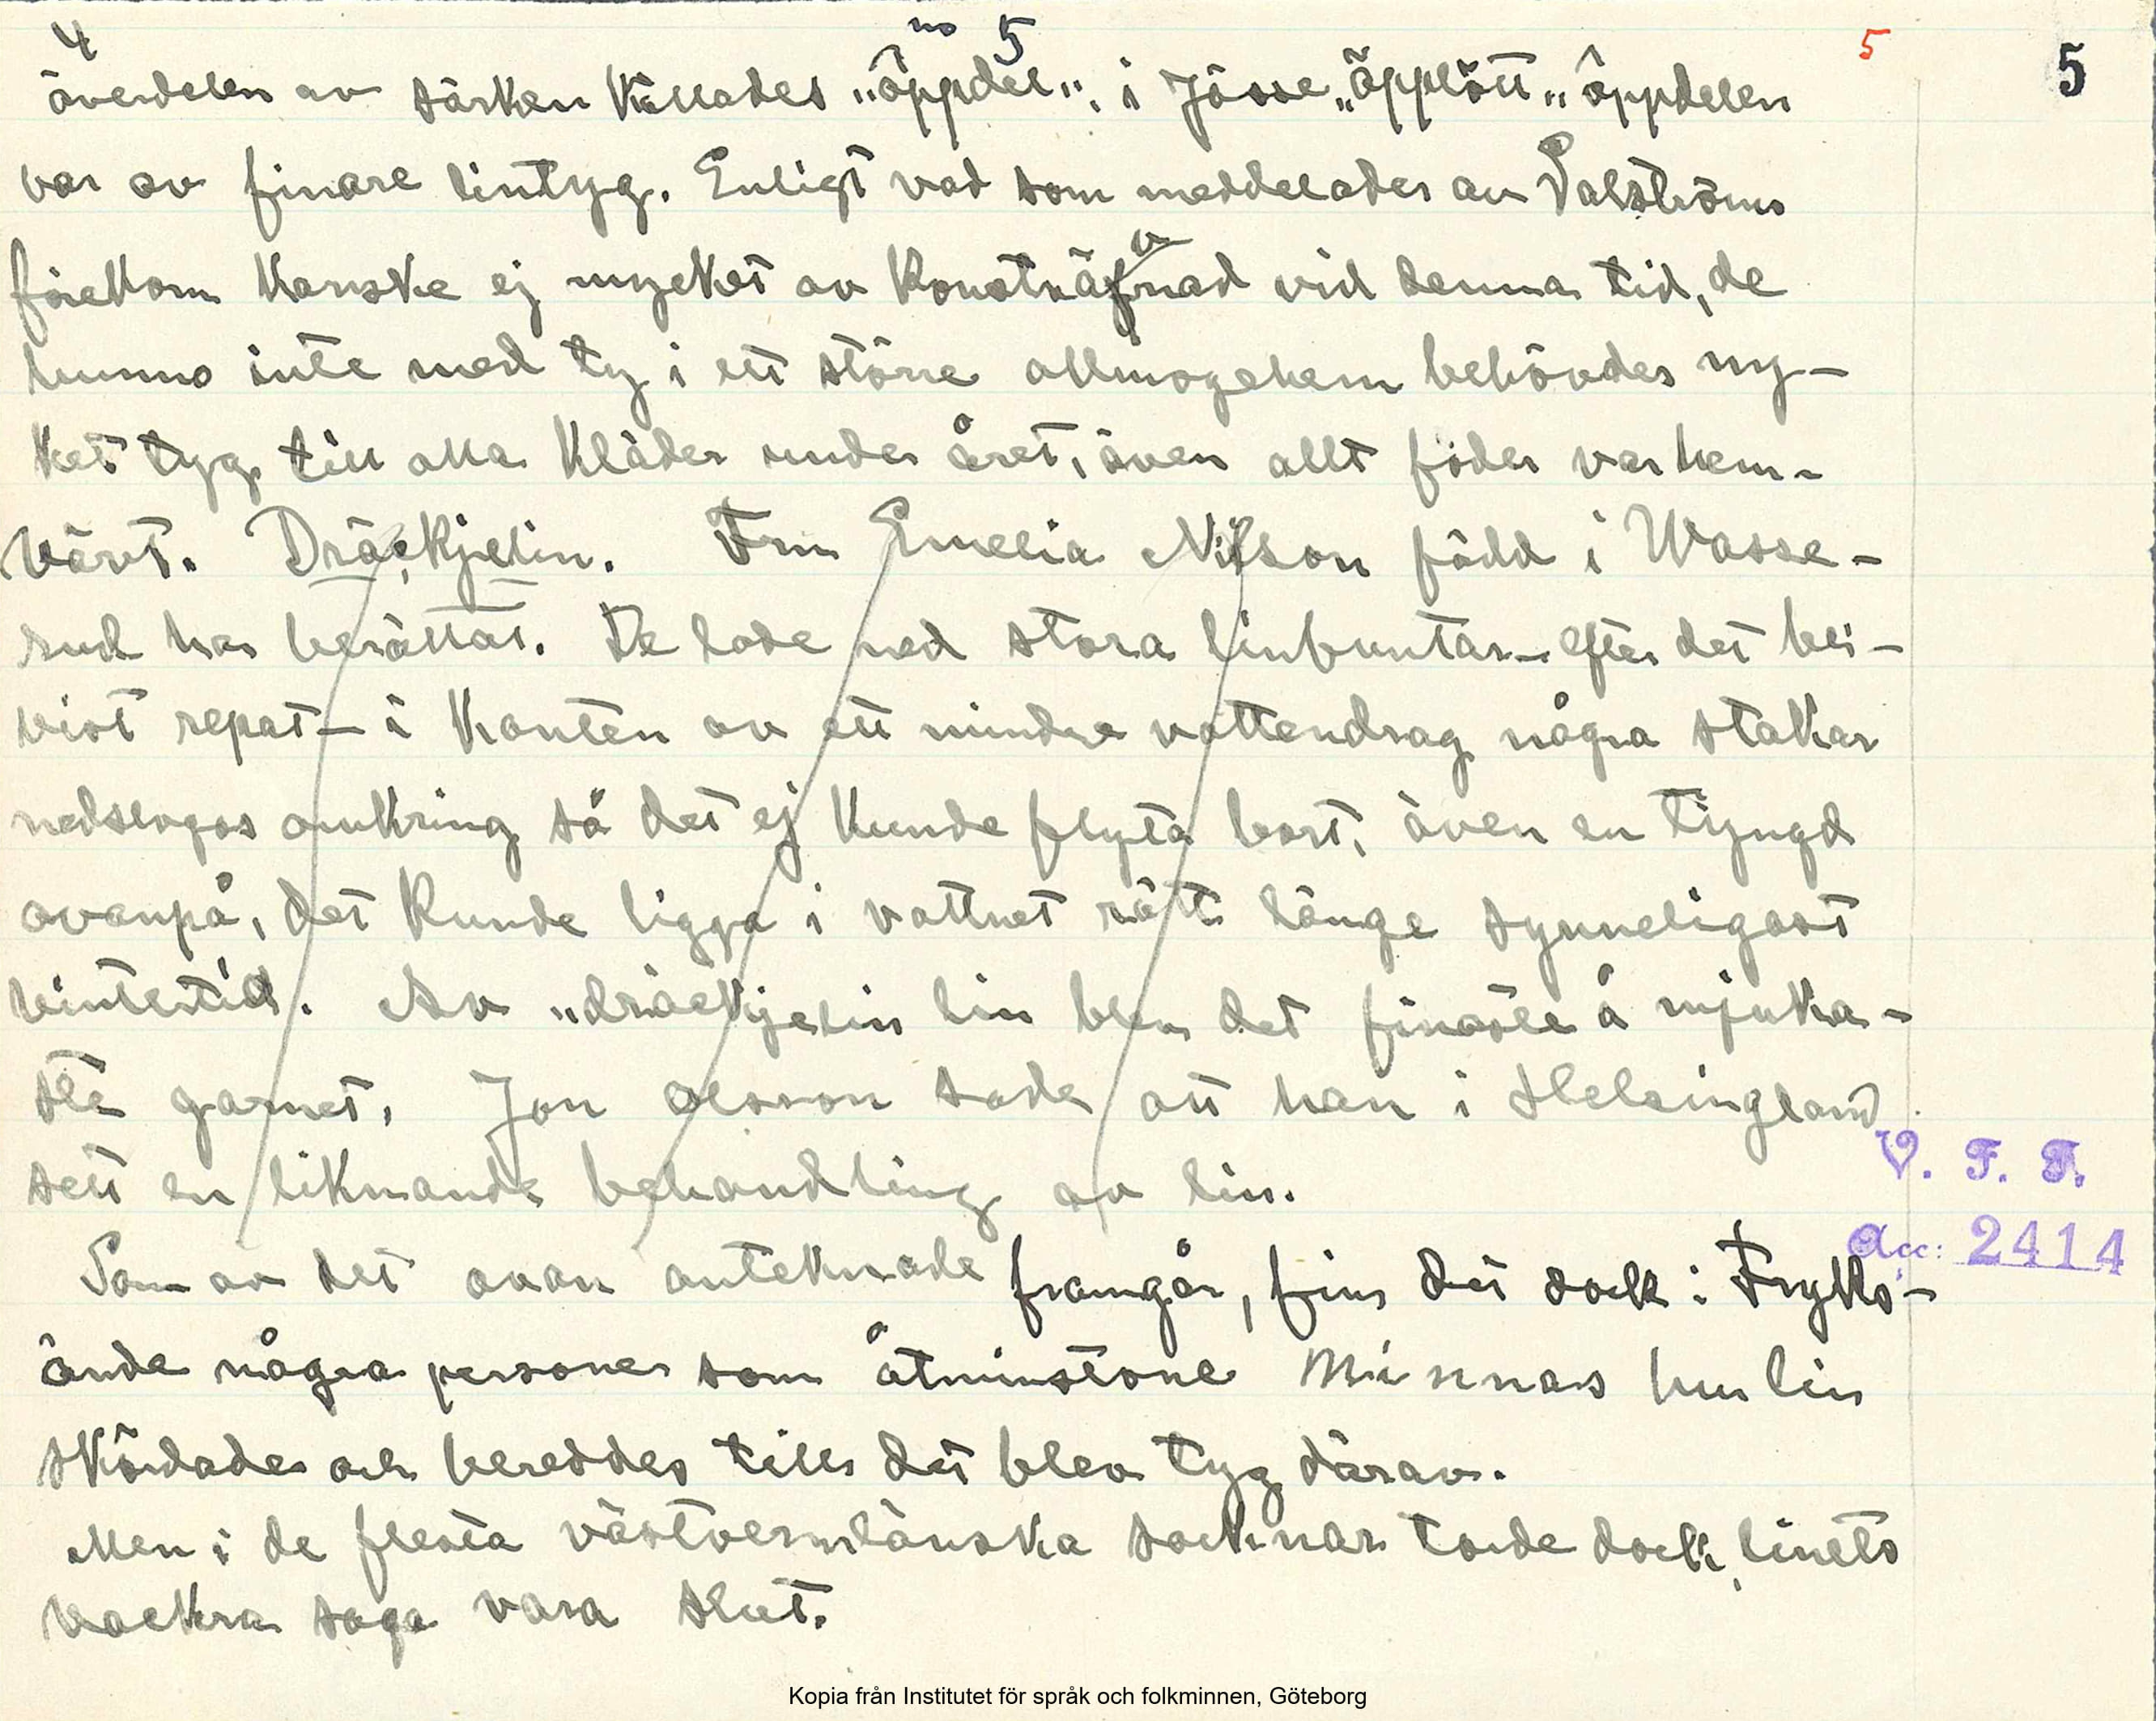 4 no 5 5 5
överdelen av särken kallades „öppdel„, i Jösse „öpplött„ öppdelen
var av finare lintyg. Enligt vad som meddelades av Valströms
förekom kanske ej mycket av konstväfvnad vid denna tid, de
hunno inte med ty i ett större allmogehem behövdes my-
ket tyg till alla kläder under året, även allt foder var hem-
vävt. Dräckjelin. Fru Emelia Nilson född i Wasse-
rud har berättat. De lade ned stora linbuntar – efter det bli-
vist repat – i kanten av ett mindre vattendrag några stakar
nedslogos omkring så det ej kunde flyta bort, även en tyngd
ovanpå, det kunde ligga i vattnet rätt länge synneligast
vintertid. Av „dräckjelin lin blev det finaste å mjuka-
ste garnet. Jon Olsson sade att han i Helsingland
sett en liknande behandling av lin.
V. F. F.
Acc: 2414
Som av det ovan anteknade framgår, fins det dock i Fryks-
ände några personer som åtminstone minnas hur lin
skördades och bereddes tills det blev tyg därav.
Men i de flesta västvermlänska socknar torde dock linets
vackra saga vara slut.
Kopia från Institutet för språk och folkminnen, Göteborg